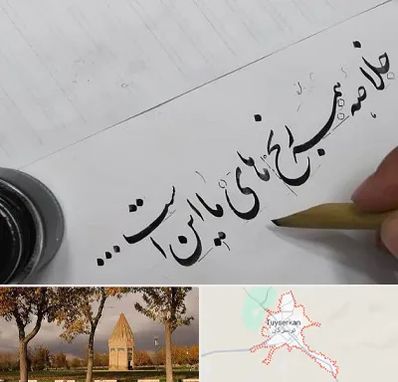 خلاصه همه رنج های ما این است...
Tuyserkan
تویسرکان